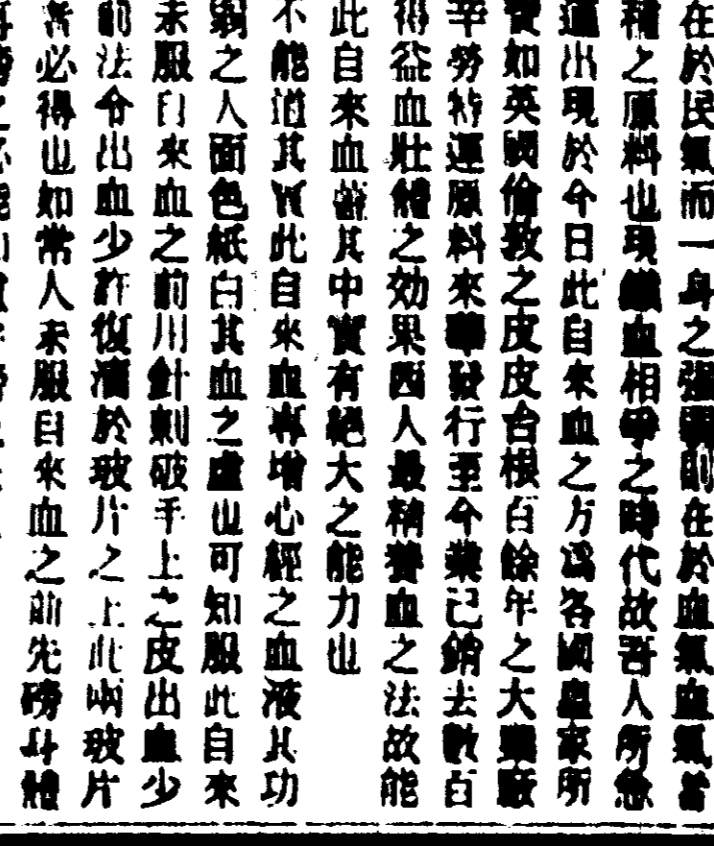 在於民氣而一身之强弱則在於血氣血氣當
種之原料也現鐵血相爭之時代故吾人所急
通出現於今日此自來血之方爲各國皇家所
實如英國倫敦之皮皮台根百餘年之大藥廠
辛勞特運原料來華發行至今業已銷去數百
得益血壯體之効果西人最精養血之法故能
此自來血藥其中實有絕大之能力也
不能道其實此自來血專增心經之血液其功
弱之人面色紙白其血之虛也可知服此自來
未服自來血之前用針刺破手上之皮出血少
前法令出血少許復滴於玻片之上此兩玻片
者必得也如常人未服自來血之前先磅身體